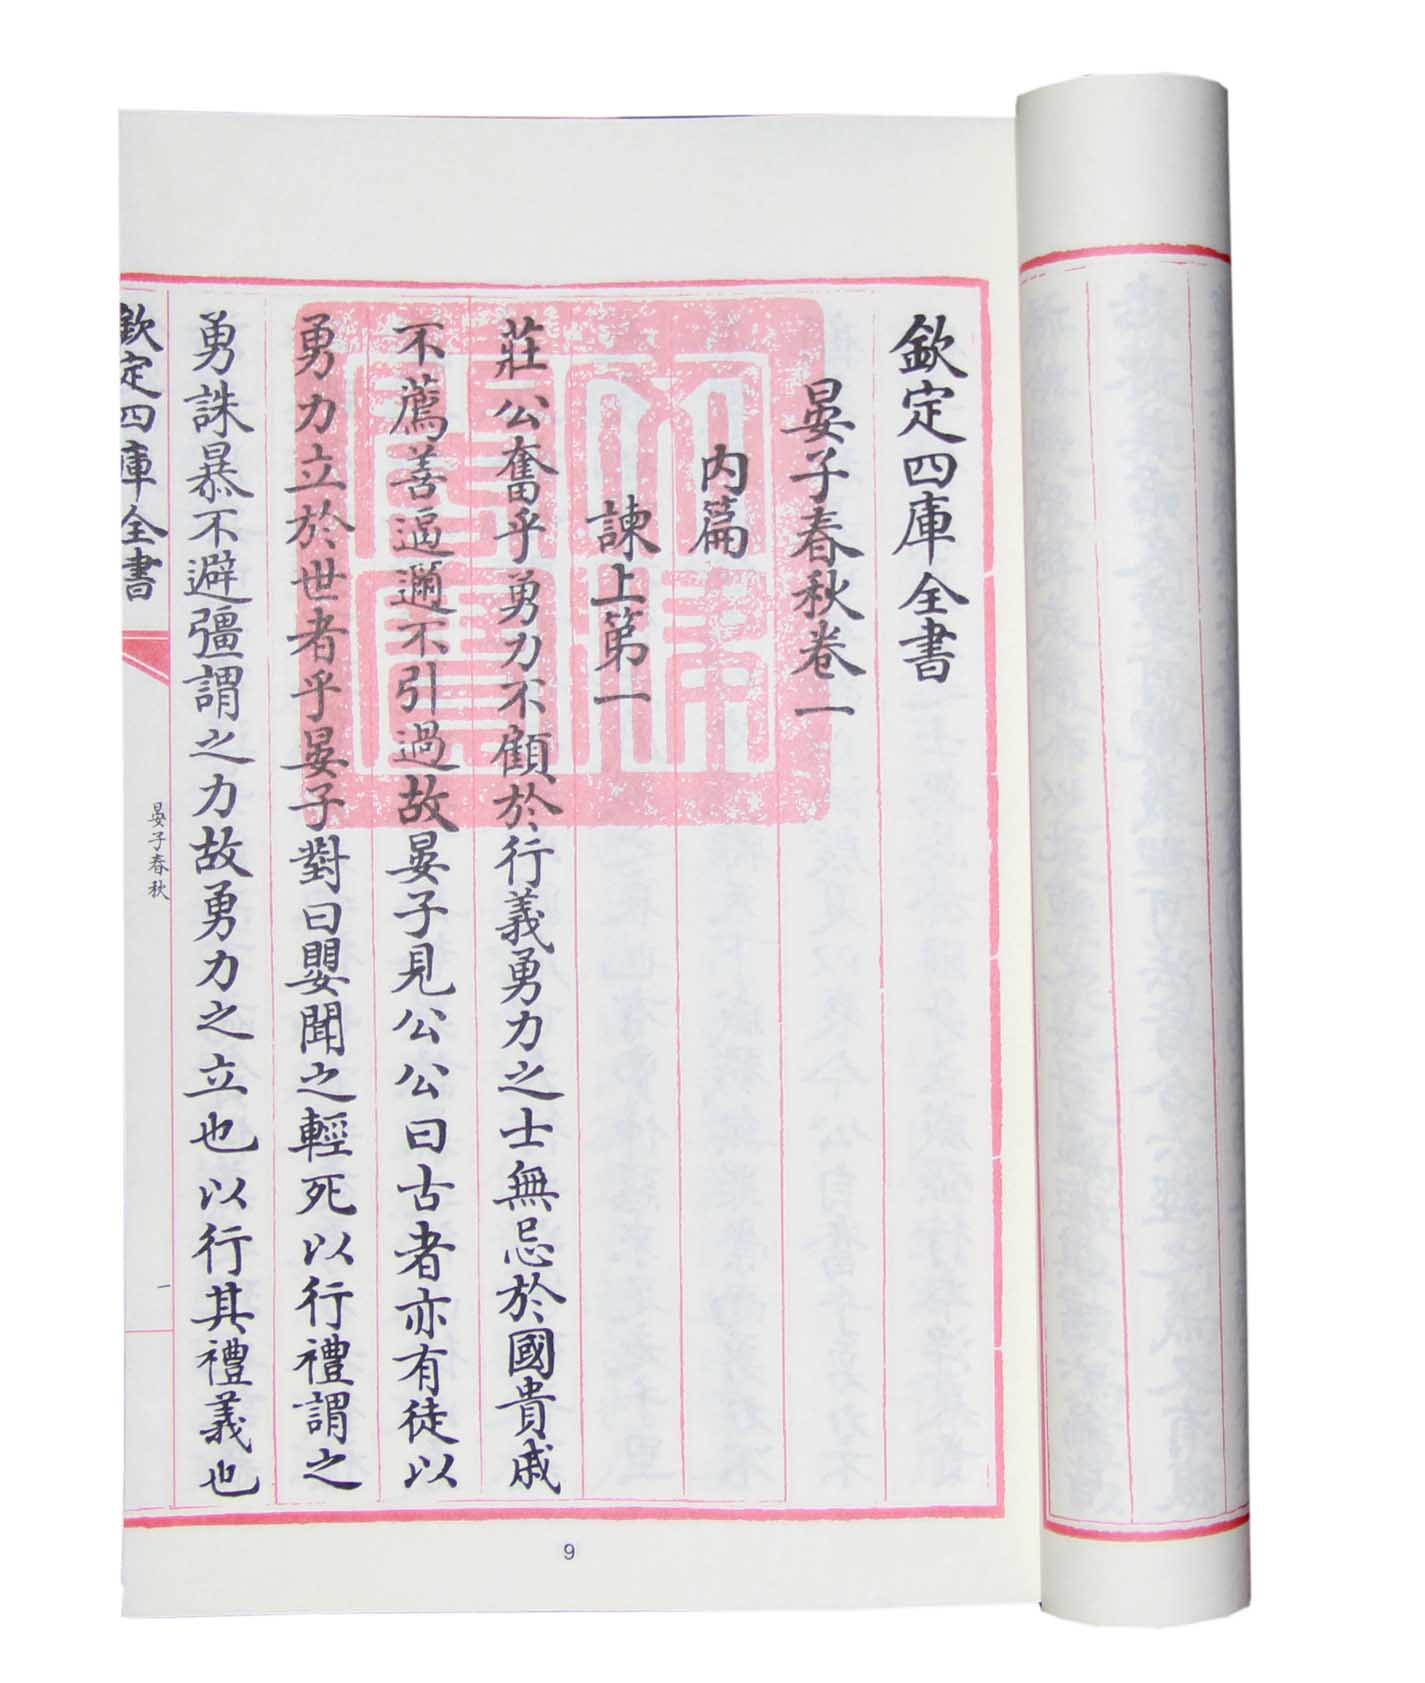 欽定四庫全書
晏子春秋卷一
内篇
諫上第一
莊公奮乎勇力不顧於行義勇力之士無忌於國貴戚
不薦善逼邇不引過故晏子見公公曰古者亦有徒以
勇力立於世者乎晏子對曰嬰聞之輕死以行禮謂之
勇誅暴不避彊謂之力故勇力之立也以行其禮義也
欽定四庫全書
晏子春秋
一
9